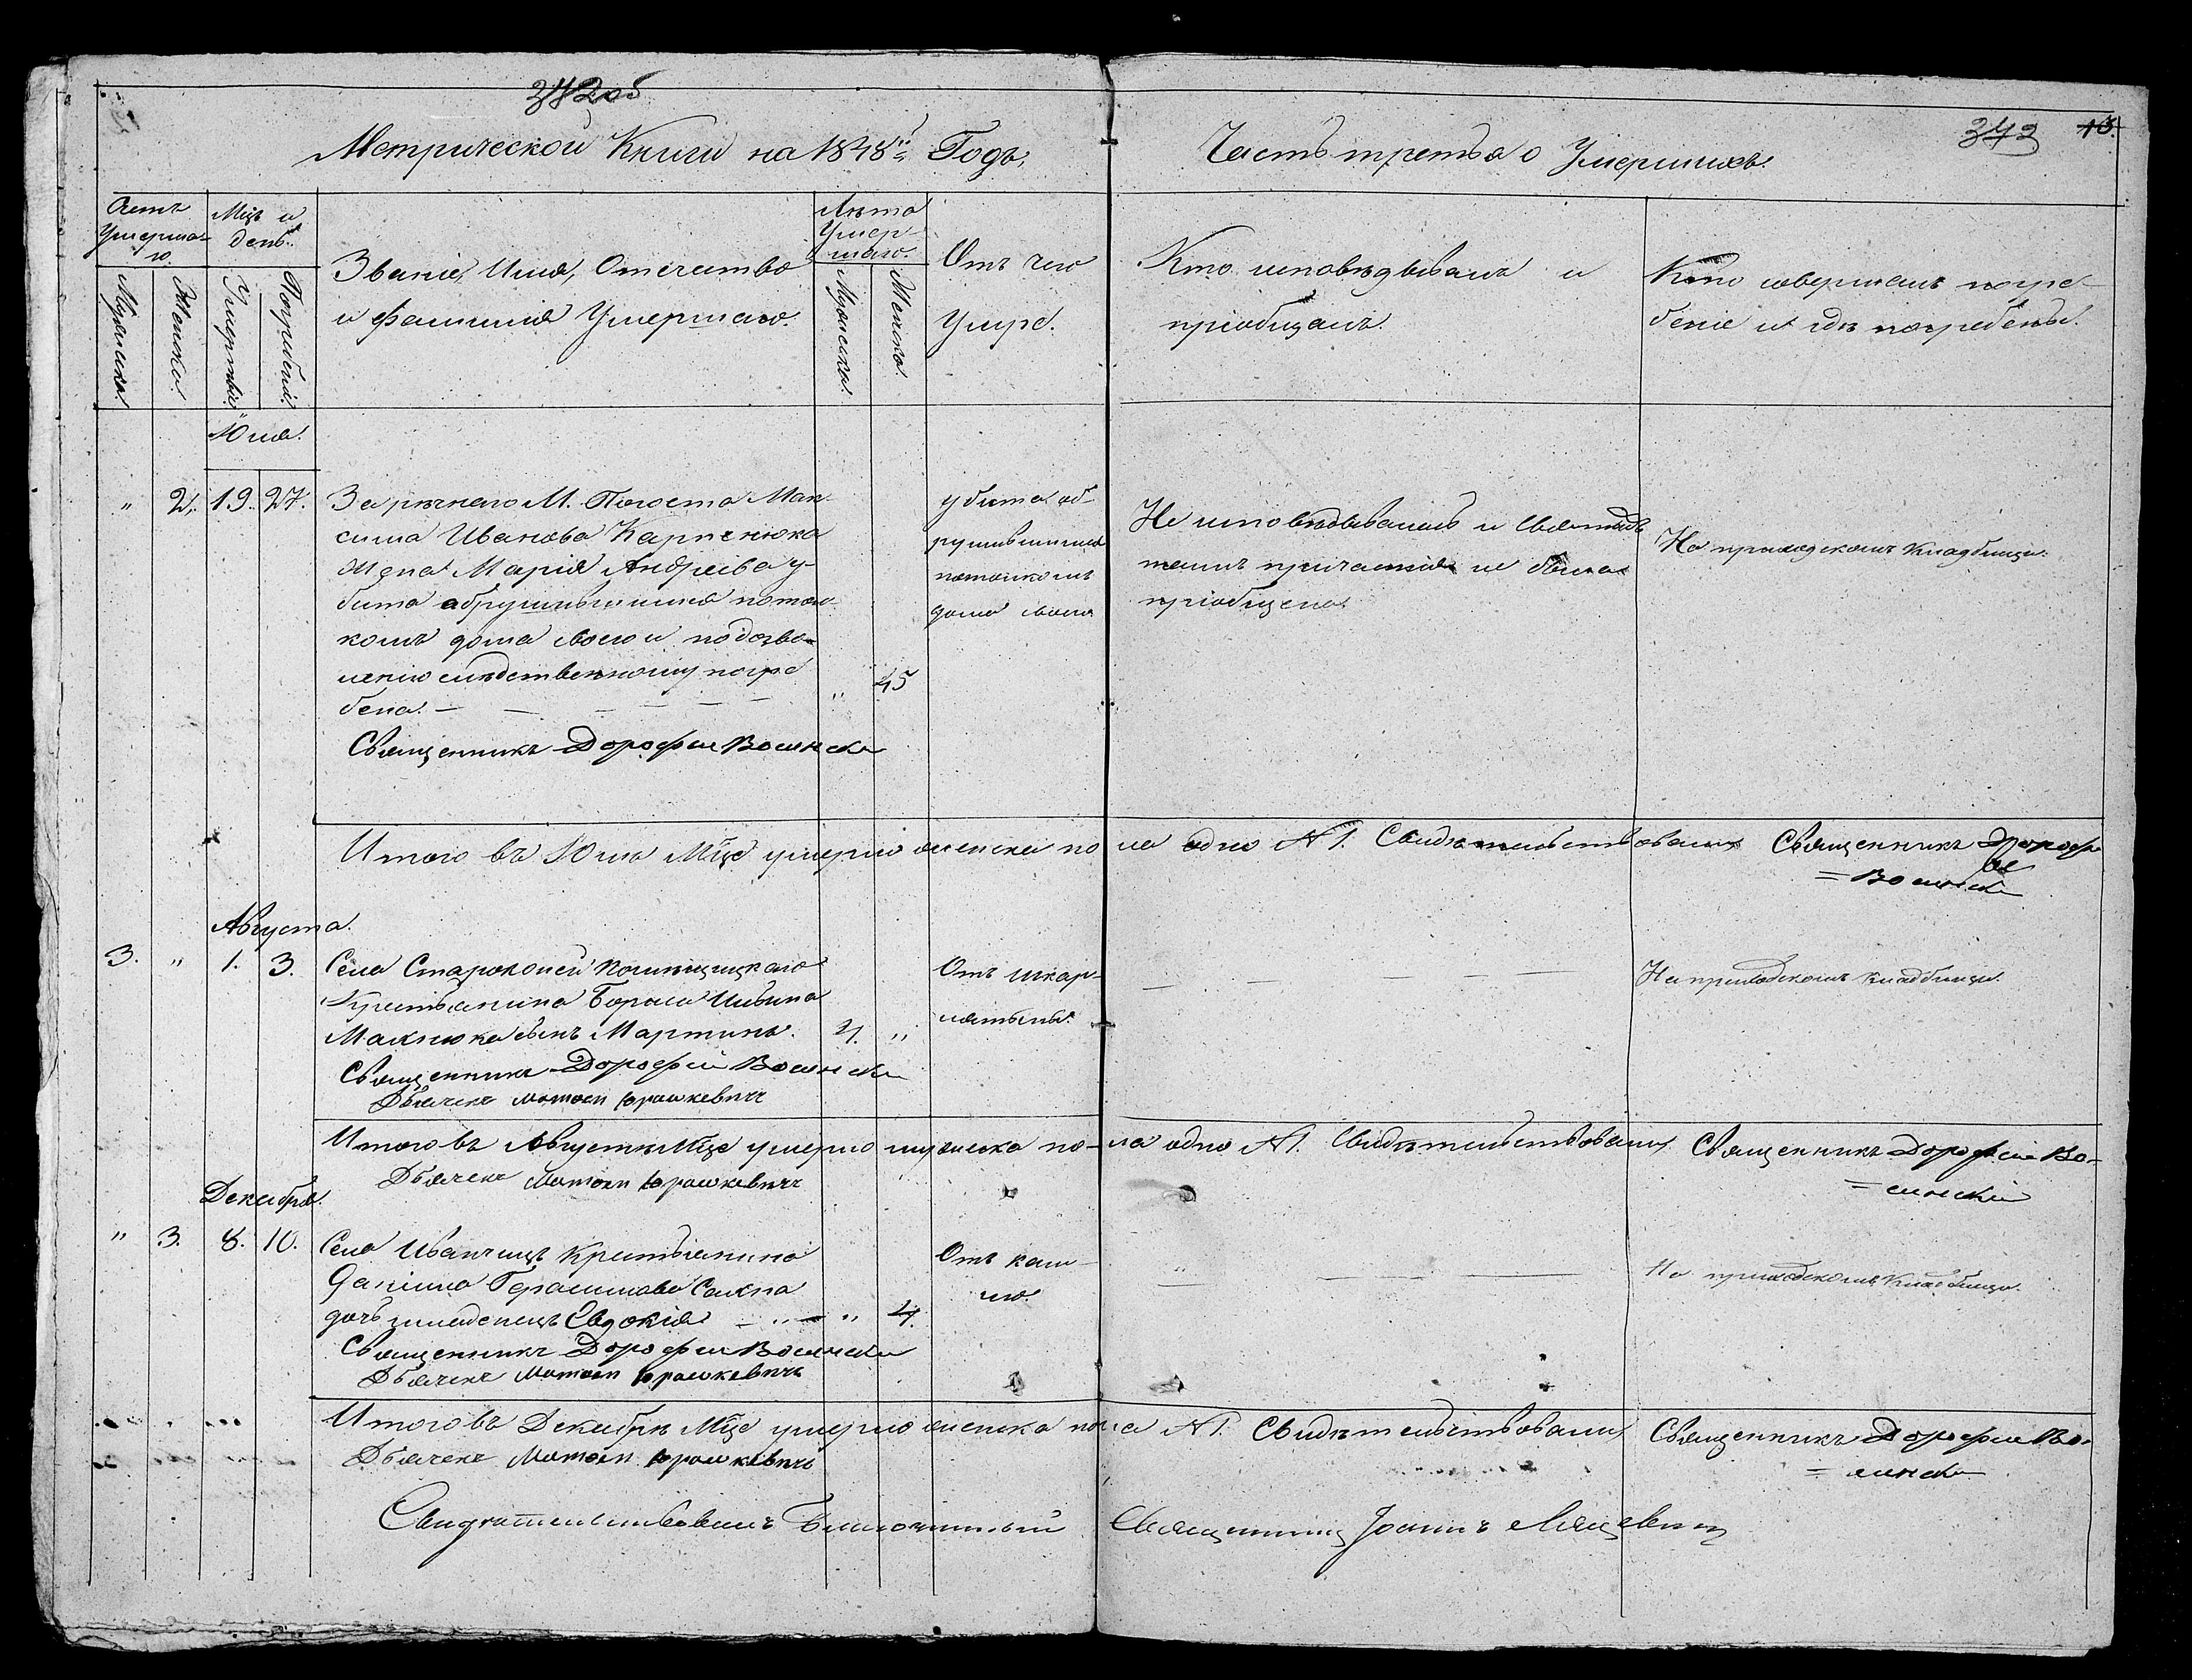 342об
Метрической Книги на 1848й Годъ,
Часть третья о Умершихъ.
343 15.
Счетъ
Умерша-
го.
Мужеска.
Женска.
Мцъ и
день.
Умертвія
Погребенія.
Званіе, Имя, Отечество
и фамилія Умершаго.
Лѣта
Умер-
шаго.
Мужеска.
Женска.
Отъ чего
Умре.
Кто исповѣдывалъ и
пріобщалъ.
Кто совершалъ погре-
беніе и гдѣ погребены.
Юля.
" 2. 19. 27.
Зарѣчнаго М. Погоста Мак-
сима Иванова Карпенюка
жена Марія Андреева у-
бита обрушившимся потол-
комъ дома своего и по дозво-
ленію слѣдственному погре
бена. —
" 45
Священникъ Дорофей
убита об-
рушившимся
потолкомъ
дома своего
Не исповѣдывалась и Святыхъ
таинъ причастія не была
пріобщена.
На приходскомъ кладбищи.
Итого въ Юлѣ Мцѣ умерло женска по ла одно № 1. Свидѣтельствовалъ Священникъ Дорофе
ей
Августа.
3. " 1. 3.
Села Староконей помѣщицкаго
Крестьянина Бориса Ильина
сынъ Мартинъ. 4. "
Священникъ Дорофей
Дьячекъ Матфей Юрашкевичъ
Отъ шкар-
лятыны.
На приходскомъ кладбищи.
Итого въ Августѣ Мцѣ умерло мужеска по- ла одно № 1. Свидѣтельствовалъ Священникъ Дорофей Во-
Дьячекъ Матфей Юрашкевичъ
Декабря.
" 3. 8. 10.
Села Иванчицъ Крестьянина
Даніила Герасимова
дочь младенецъ Евдокія — " 4.
Священникъ Дорофей
Дьячекъ Матфей Юрашкевичъ
Отъ каш-
лю.
На приходскомъ кладбищи.
Итого въ Декабрѣ Мцѣ умерло женска пола № 1. Свидѣтельствовалъ Священникъ Дорофей Во-
Дьячекъ Матфей Юрашкевичъ
Свидѣтельствовалъ Благочинный Священникъ Іоаннъ